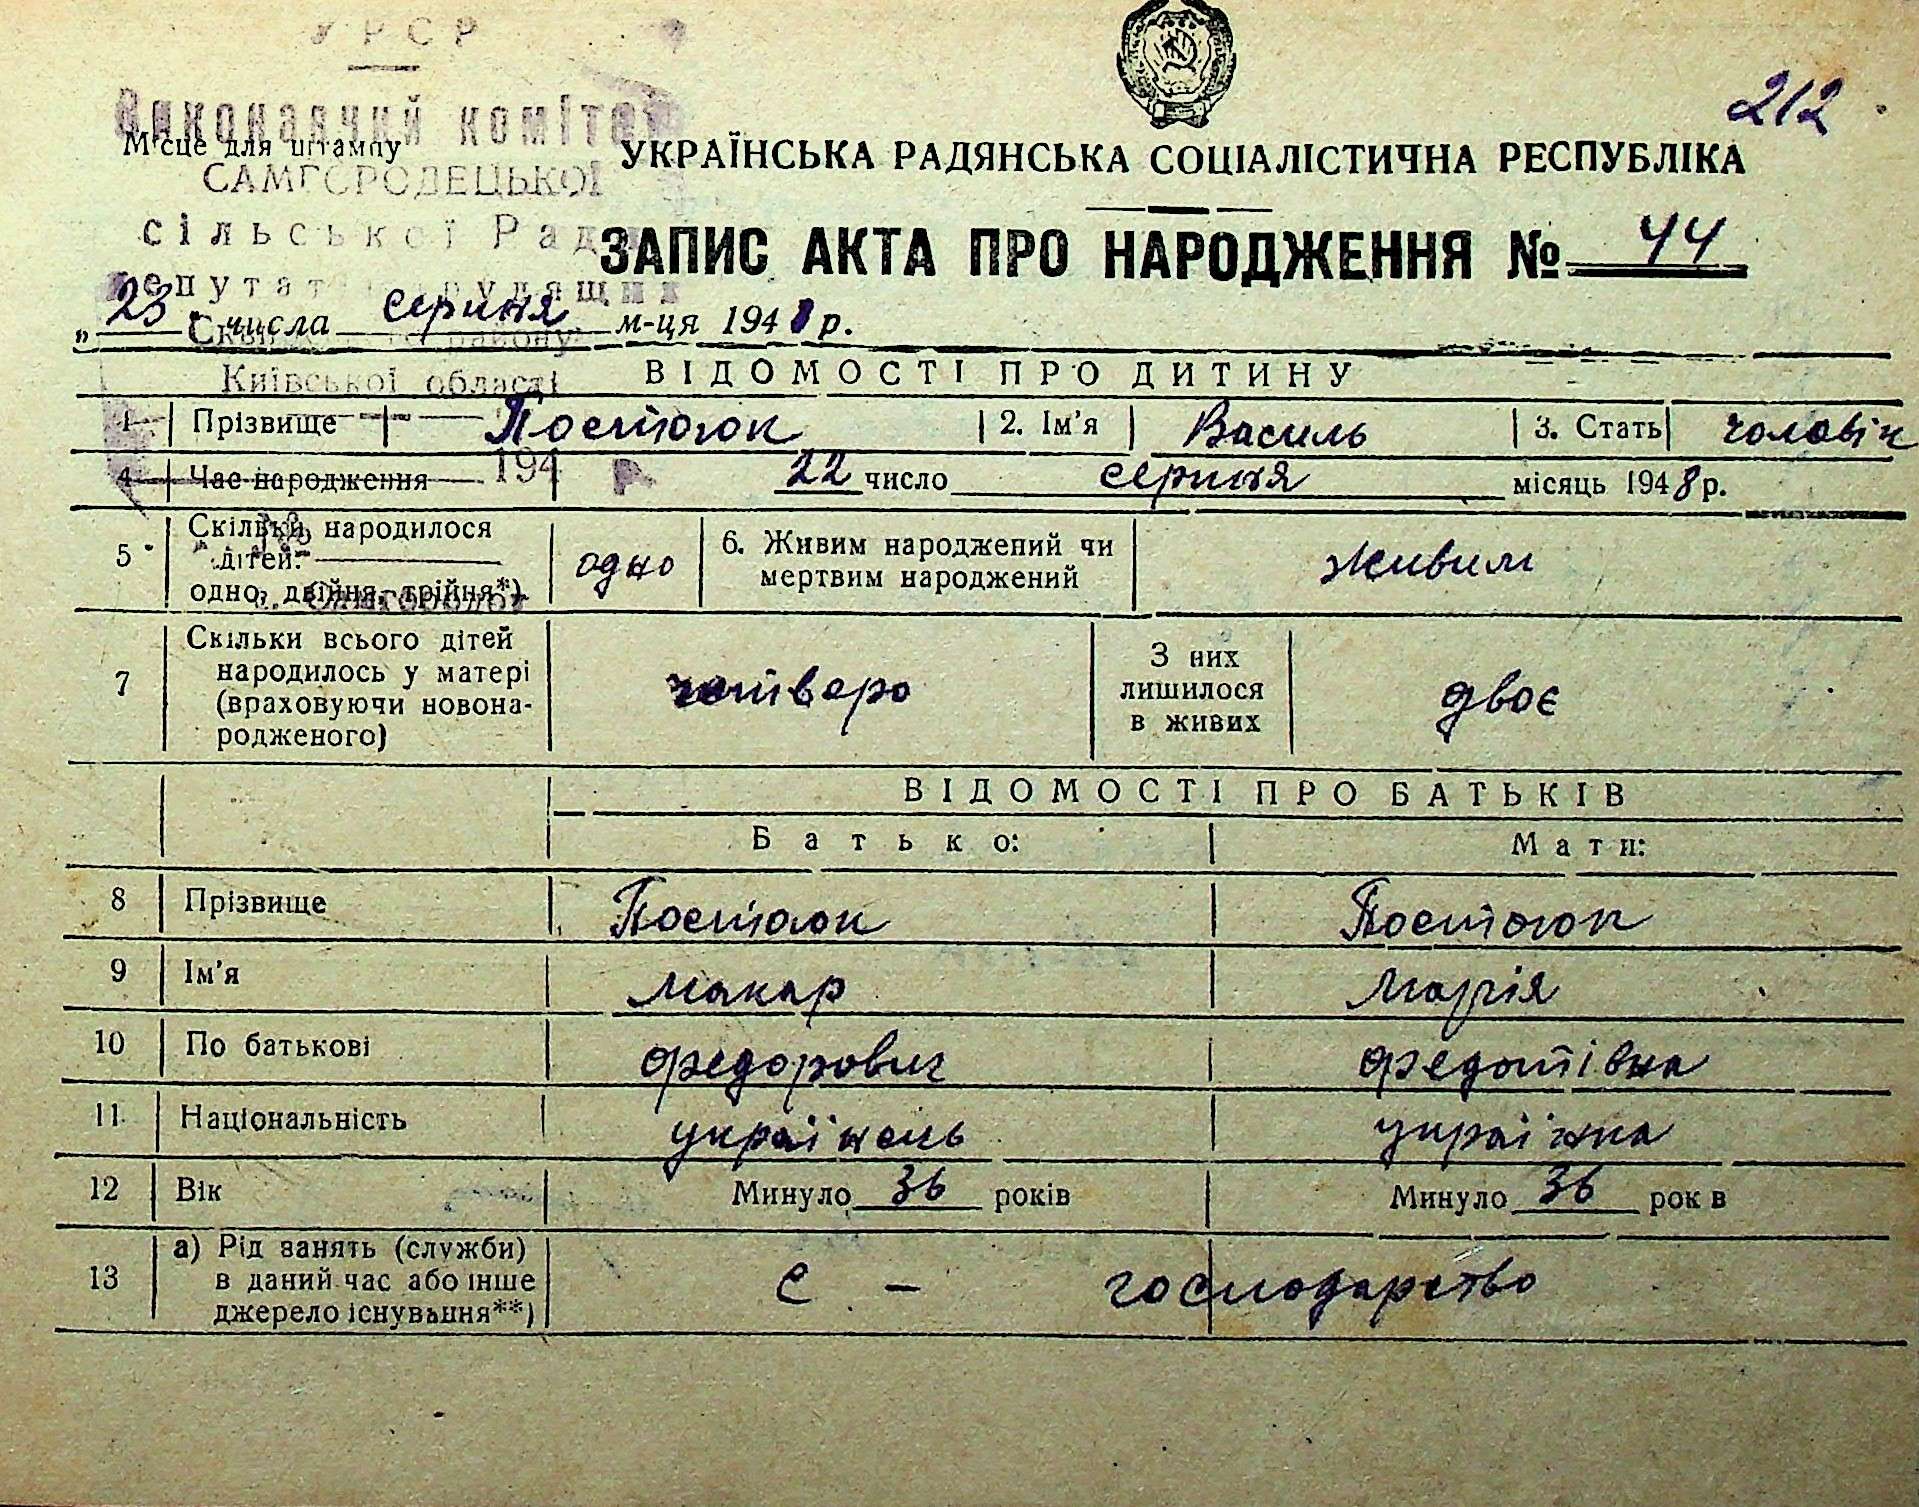 УРСР
212
Виконавчий комітет
Місце для штампу
УКРАЇНСЬКА РАДЯНСЬКА СОЦІАЛІСТИЧНА РЕСПУБЛІКА
САМГОРОДЕЦЬКОЇ
сільської Ради
ЗАПИС АКТА ПРО НАРОДЖЕННЯ № 44
депутатів трудящих
„ 23 " числа серпня м-ця 1948 р.
Сквирського району
Київської області
ВІДОМОСТІ ПРО ДИТИНУ
1 Прізвище Постюок 2. Ім'я Василь 3. Стать чоловік
194 р
4 Час народження 22 число серпня місяць 1948 р.
5 Скільки народилося дітей: одно, двійня, трійня*) одно 6. Живим народжений чи мертвим народжений живим
с. Самгородок
7 Скільки всього дітей народилось у матері (враховуючи новона-родженого) четверо З них лишилося в живих двоє
ВІДОМОСТІ ПРО БАТЬКІВ
Батько: Мати:
8 Прізвище Постюок Постюок
9 Ім'я Макар Марія
10 По батькові Федорович Федотівна
11 Національність українець українка
12 Вік Минуло 36 років Минуло 36 рок в
13 а) Рід занять (служби) в даний час або інше джерело існування**) с - господарство